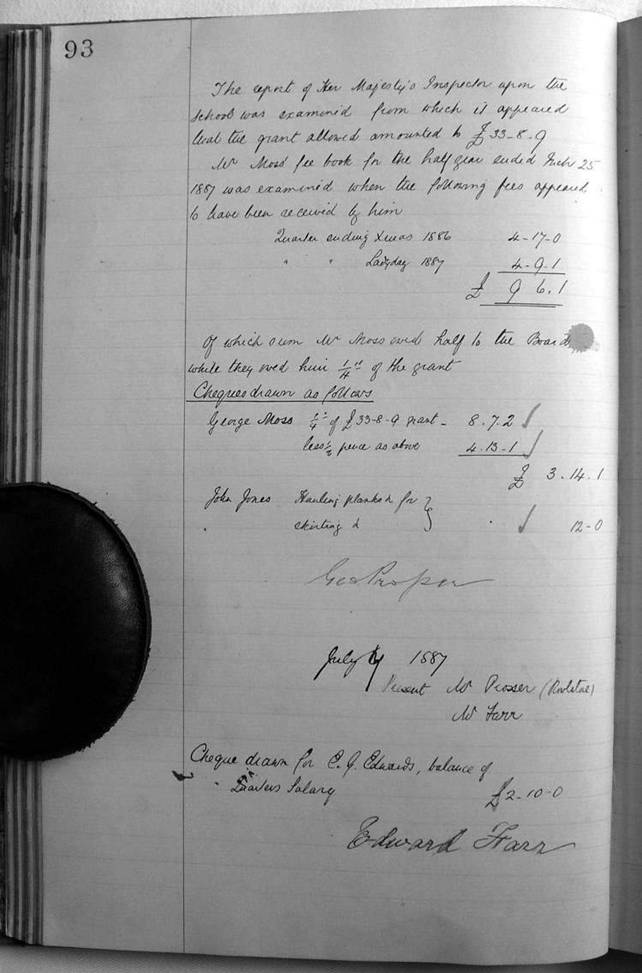 93
The report of Her Majesty's Inspector upon the
school was examined from which it appeared
that the grant allowed amounted to £33-8-9
Mr Moss' fee book for the half year ended Mch 25
1887 was examined when the following fees appeared
to have been received by him
Quarter ending Xmas 1886 4-17-0
" " Ladyday 1887 4-9-1
£ 9 6.1
Of which sum Mr Moss owed half to the Board
while they owed him 1/4 of the grant
Cheques drawn as follows
George Moss 1/4 of £33-8-9 grant - 8.7.2
less 1/2 pence as above 4.13-1
£ 3.14.1
John Jones Hauling planks for
skirting 12-0
Geo Prosser
July 4 1887
Present Mr Prosser
Mr Farr
Cheque drawn for E. J. Edwards, balance of
Quarters Salary £2-10-0
Edward Farr